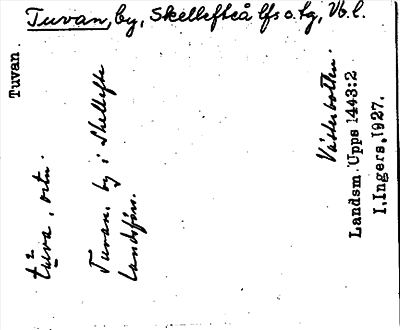 Tuvan, by, Skellefteå lfs o. tg, Vb. l.
Tuvan.
tuva, ortn.
Tuvan, by i Skellefte
landsförs.
Västerbotten.
Landsm. Upps 1443:2
I. Ingers, 1927.